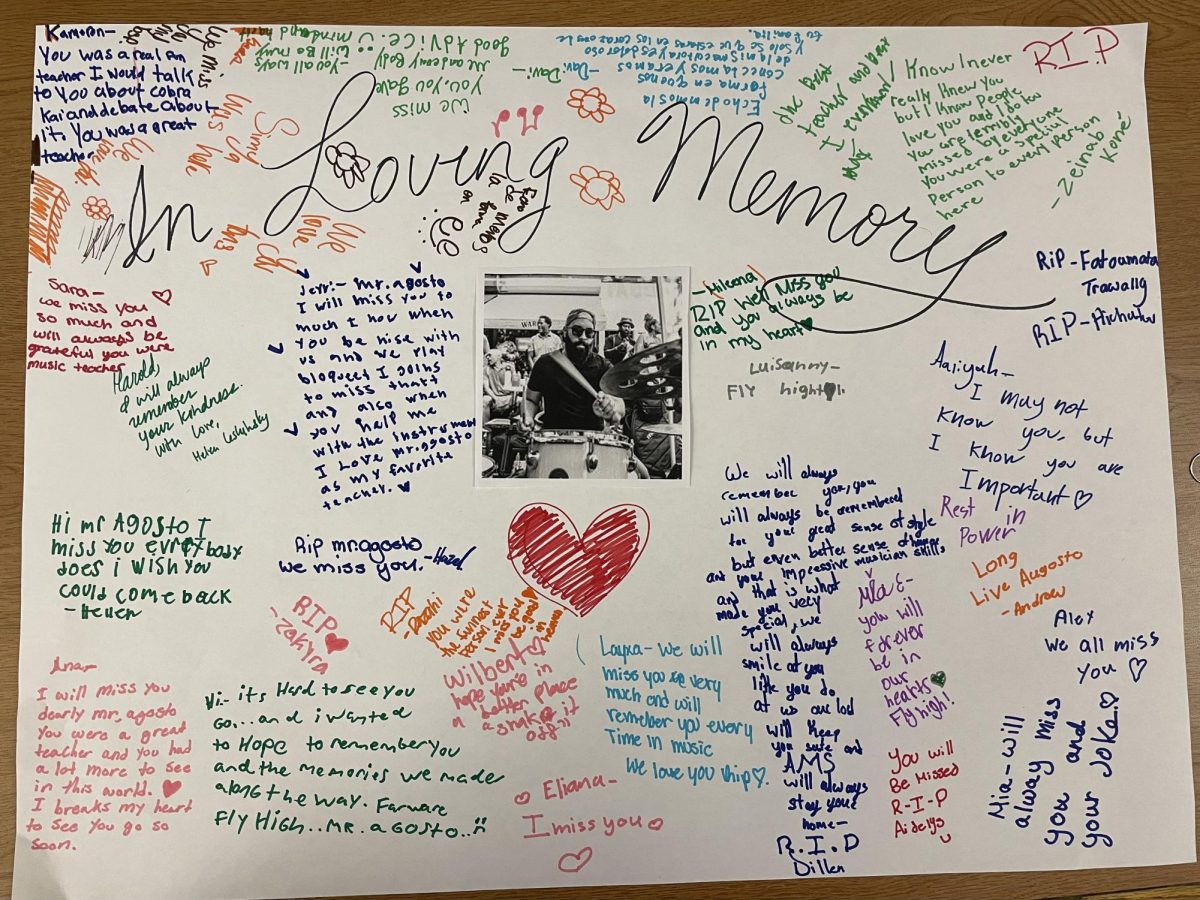 Kamron-
You was a real an
teacher I would talk
to you about cobra
kai and debate about
it. You was a great
teacher
We Miss
We miss
you, you gave
me and every body
-you all ways
good AdVice.
will Be in my
mind and
Davi-
-Davi
Echo de menos la
forma en que nos
conectamos y eramos
de la misma cultura y es doloroso
y solo se que estaras en los corazones
tu familia.
the Best
teacher and Best
I
I Know I never
really knew you
but I know People
love you and I do know
You are terribly
missed by everyone
You were a special
Person to every person
here
-Zeinab
Koné
RIP
In Loving Memory
We
love
Sara-
we miss you
so much and
will always be
grateful you were
music teacher
Harold,
I will always
remember
your kindness.
with love,
Helen
Jerri- mr.agosto
I will miss you to
much I nov when
you be nise with
us and we play
bloquet I goins
to miss that
and also when
you half me
with the instrument
I Love mr.agosto
as my favorite
teacher.
-Mileena
RIP We'll Miss you
and you always be
in my heart
LuiSanny-
FLY high
RiP-Fatoumata
Trawally
RIP-
Aaliyah-
I may not
know you, but
I know you are
Important
Rest in
Power
Long
Live Augosto
-Andrew
Alex
We all miss
You
Hi mr Agosto I
miss you evrey body
does i wish you
could come back
-Heven
Rip mr.agosto
we miss you. -Hazel
RIP
-Zakyra
RIP
you were
the
for ever
I miss you
be good
in
heaven
Wilbert
hope you're in
a better place
a shake it
off!!
We will always
remember you, you
will always be remembered
for your great sense of style
but even better sense of humor
and your impressive musician skills
and that is what
made you very
special, we
will always
smile at you
like you do
at us our lod
will Keep
you safe and
AMS
will always
stay your
home-
R.I.P
Dillen
you will
forever
be in
our
hearts
Fly high!
Layxa- We will
miss you so very
much and will
remember you every
Time in music
We love you Whip
Ana-
I will miss you
dearly mr. agosto
You were a great
teacher and you had
a lot more to see
in this world.
I breaks my heart
to see you go so
soon.
Vi:- it's Hard to see you
Go...and i wanted
to HoPe to remember you
and the memories we made
along the way. Farware
Fly HIGH..MR. aGosto..
Eliana-
I miss you
You will
Be Missed
R-I-P
Aidelys
Mia-will
always miss
you and
your Joke